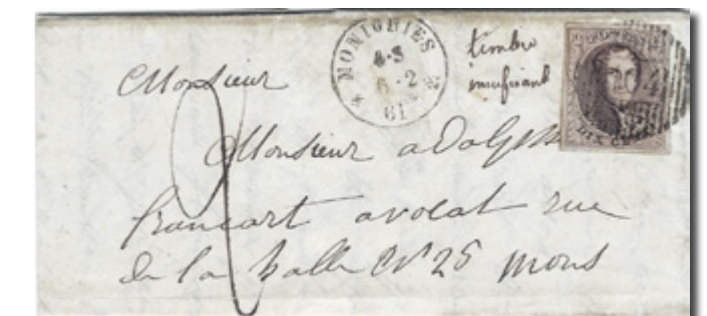 * MONIGNIES *
6-2
61
timbre
insufisant
Monsieur
Monsieur adolphe
francart avocat rue
de la halle N° 25 mons
DIX